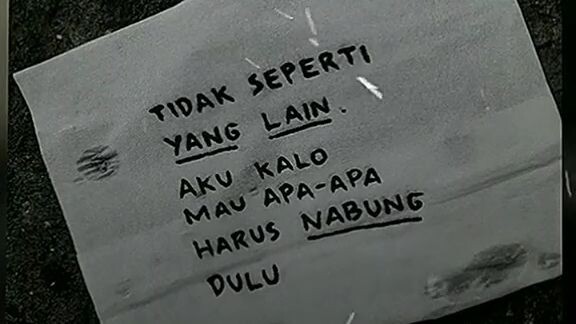 TIDAK SEPERTI
YANG LAIN.
AKU KALO
MAU APA-APA
HARUS NABUNG
DULU